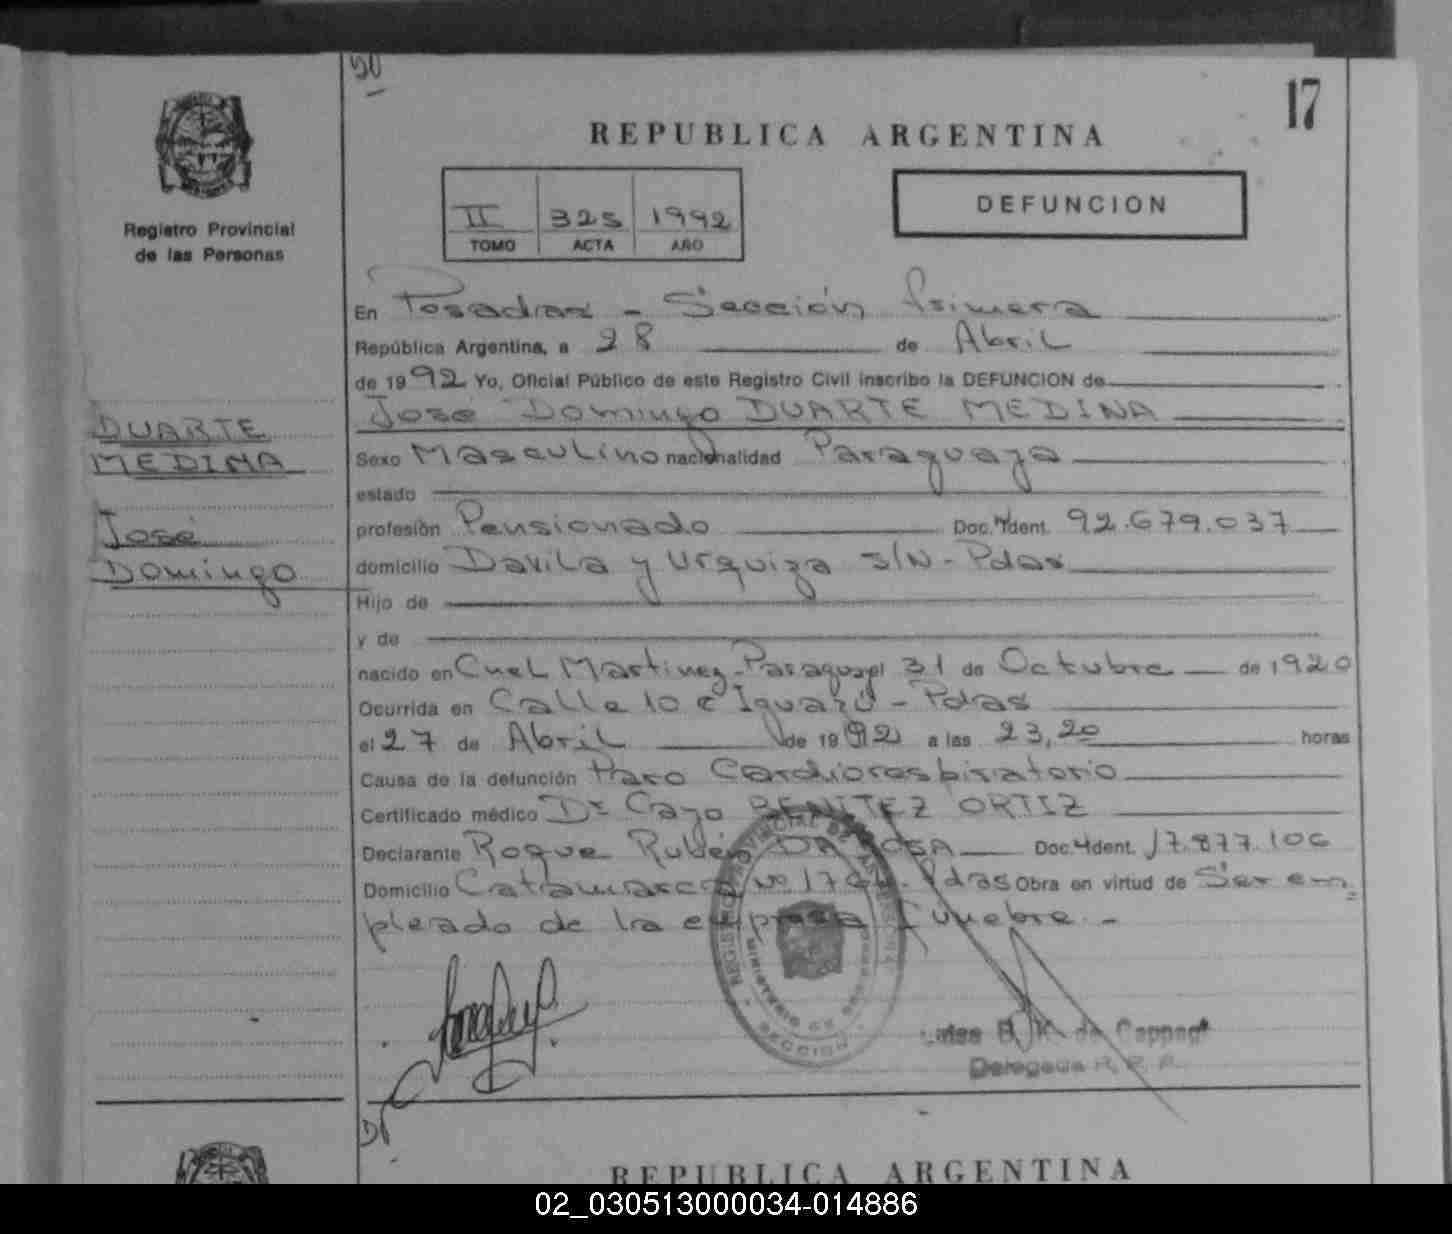 50
17
REPUBLICA ARGENTINA
Registro Provincial
de las Personas
II 325 1992
TOMO ACTA AÑO
DEFUNCION
En Posadas - Sección Primera
República Argentina, a 28 de Abril
de 1992 Yo, Oficial Público de este Registro Civil inscribo la DEFUNCION de
José Domingo DUARTE MEDINA
DUARTE
MEDINA
José
Domingo
Sexo Masculino nacionalidad Paraguaya
estado
profesión Pensionado Doc. Ident. 92.679.037
domicilio Davila y Urquiza S/N - Pdas
Hijo de
y de
nacido en Cnel Martinez - Paraguay el 31 de Octubre de 1920
Ocurrida en Calle 10 e Iguazú - Pdas
el 27 de Abril de 1992 a las 23,20 horas
Causa de la defunción Paro Cardiorespiratorio
Certificado médico Dr Cayo BENITEZ ORTIZ
Declarante Roque Rubén DA ROSA Doc. Ident. 17.877.106
Domicilio Catamarca Nº Pdas Obra en virtud de Ser em=
pleado de la empresa fúnebre.-
REGISTRO PROVINCIAL DE LAS PERSONAS
MINISTERIO DE GOBIERNO
SECCION
B. K. de Cappag
Delegada R. P. P.
REPUBLICA ARGENTINA
02_030513000034-014886